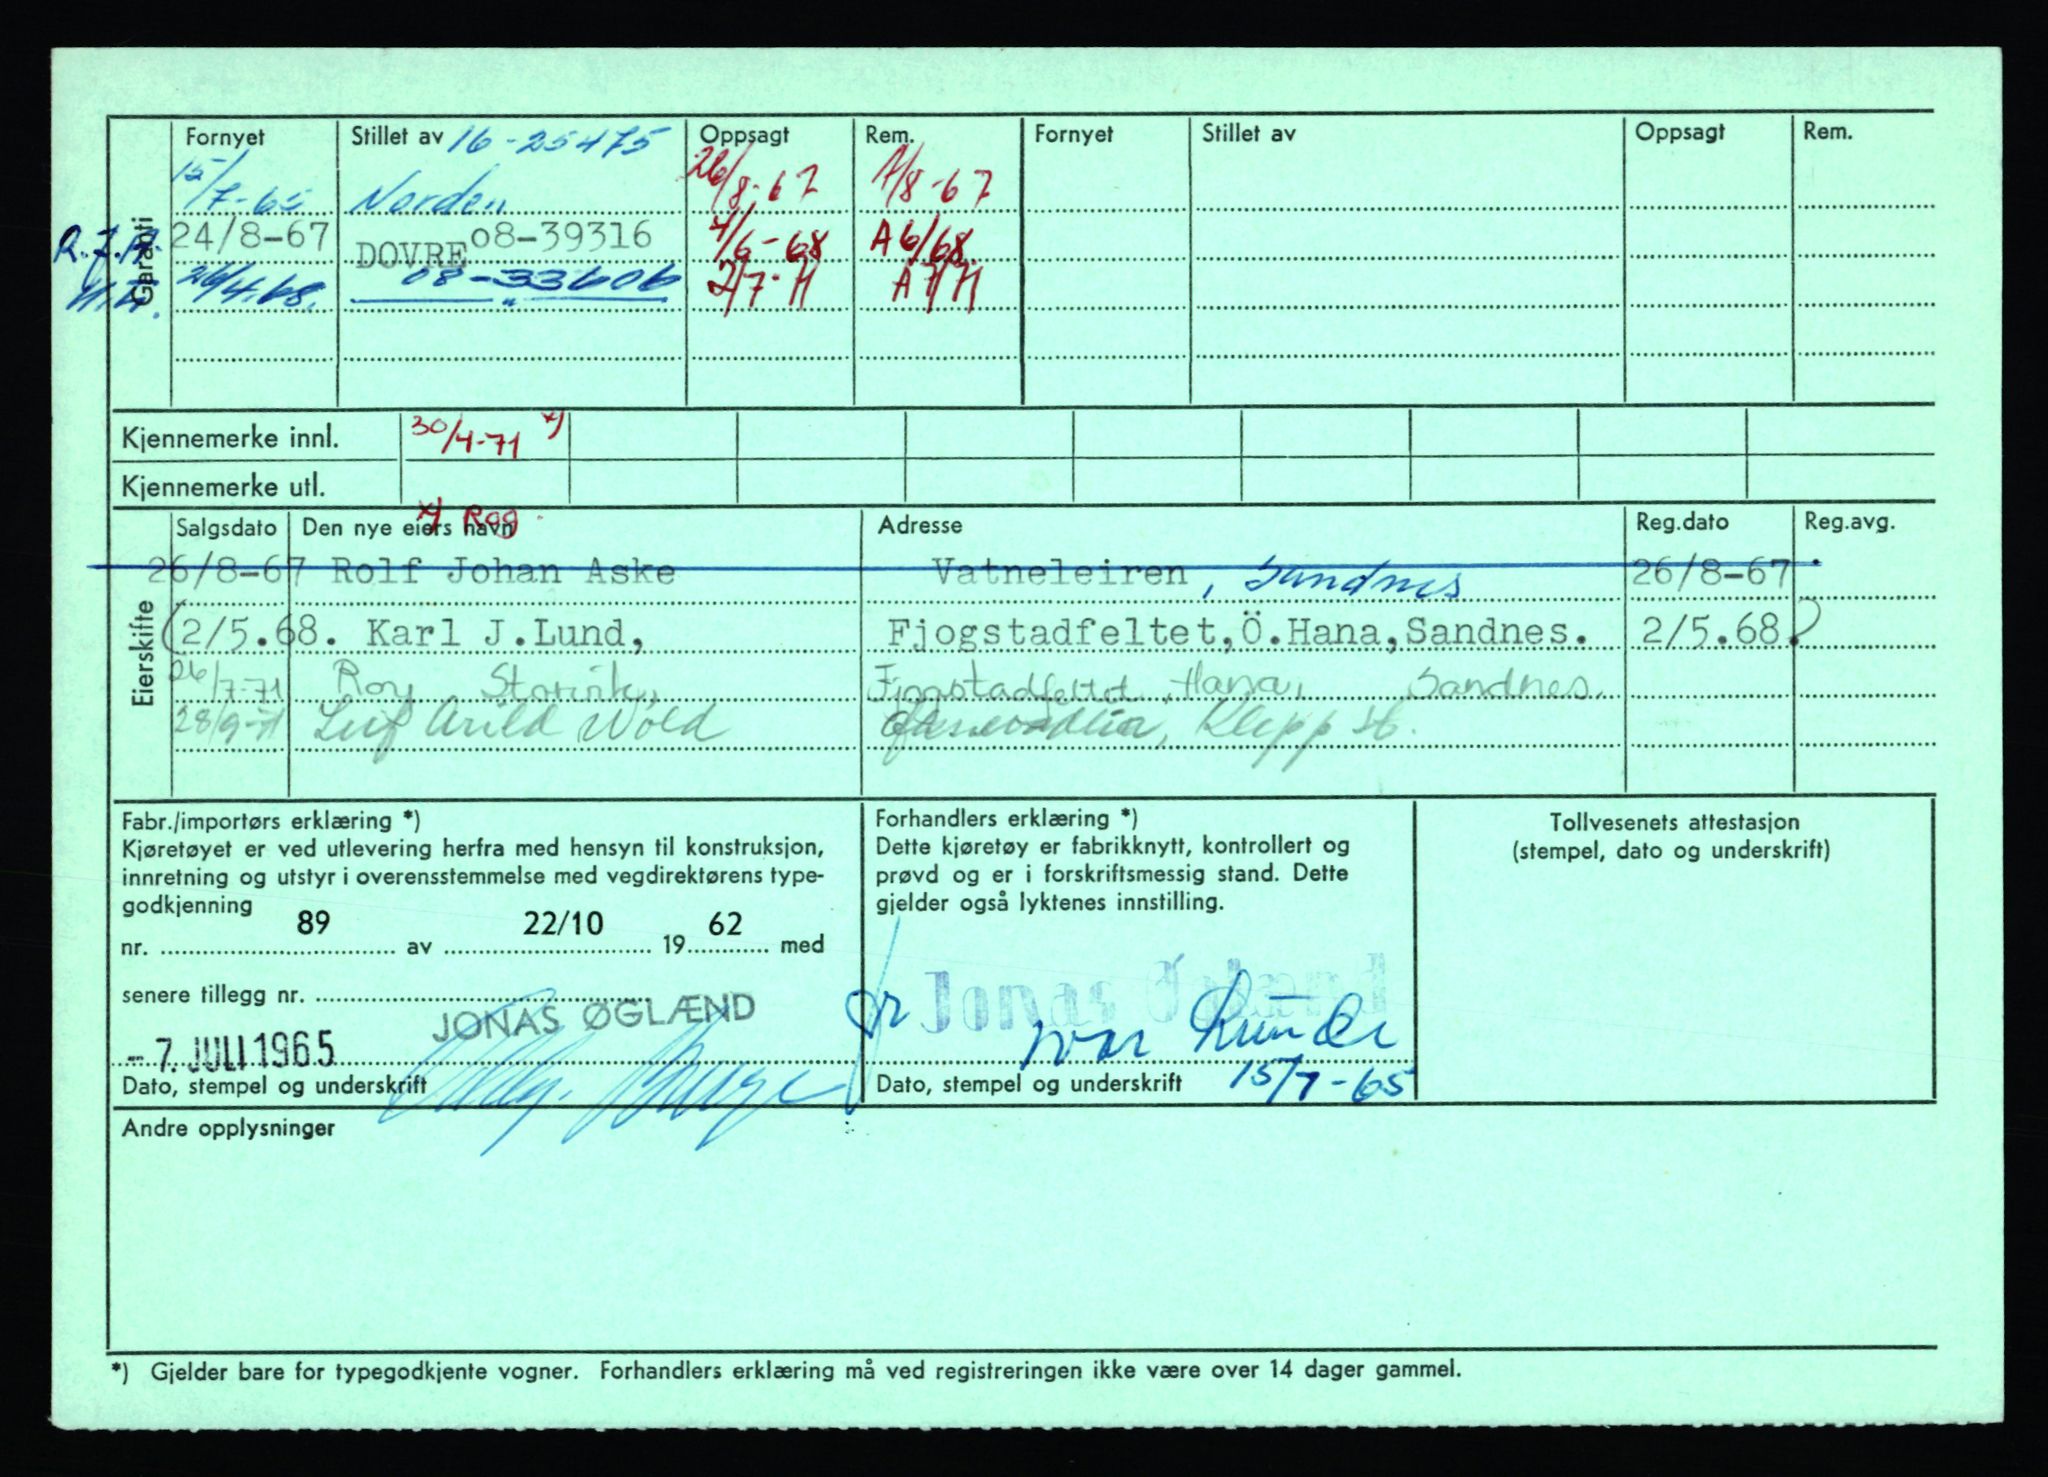 Garanti
Fornyet Stillet av 16-25475 Oppsagt Rem. Fornyet Stillet av Oppsagt Rem.
15/7-65 Norden 26/8-67 1/8-67
24/8-67 DOVRE 08-39316 4/6-68 A 6/68
26/4.68. 08-33606 2/7-71 A 7/71
Kjennemerke innl. 30/4-71 x)
Kjennemerke utl.
x) Rog.
Eierskifte
Salgsdato Den nye eiers navn Adresse Reg.dato Reg.avg.
26/8-67 Rolf Johan Aske Vatneleiren, Sandnes 26/8-67
(2/5.68. Karl J.Lund, Fjogstadfeltet,Ö.Hana,Sandnes. 2/5.68.)
26/7-71 Roy Fjogstadfeltet, Hana, Sandnes.
28/9-71 Leif Arild Wold Klepp st.
Fabr./importørs erklæring *)
Kjøretøyet er ved utlevering herfra med hensyn til konstruksjon,
innretning og utstyr i overensstemmelse med vegdirektørens type-
godkjenning
nr. 89 av 22/10 19 62 med
senere tillegg nr.
JONAS ØGLÆND
-7. JULI 1965
Dato, stempel og underskrift
Forhandlers erklæring *)
Dette kjøretøy er fabrikknytt, kontrollert og
prøvd og er i forskriftsmessig stand. Dette
gjelder også lyktenes innstilling.
Jonas Øglænd
Dato, stempel og underskrift 15/7-65
Tollvesenets attestasjon
(stempel, dato og underskrift)
Andre opplysninger
*) Gjelder bare for typegodkjente vogner. Forhandlers erklæring må ved registreringen ikke være over 14 dager gammel.